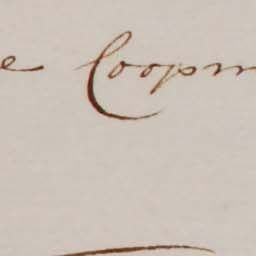 e Coopm